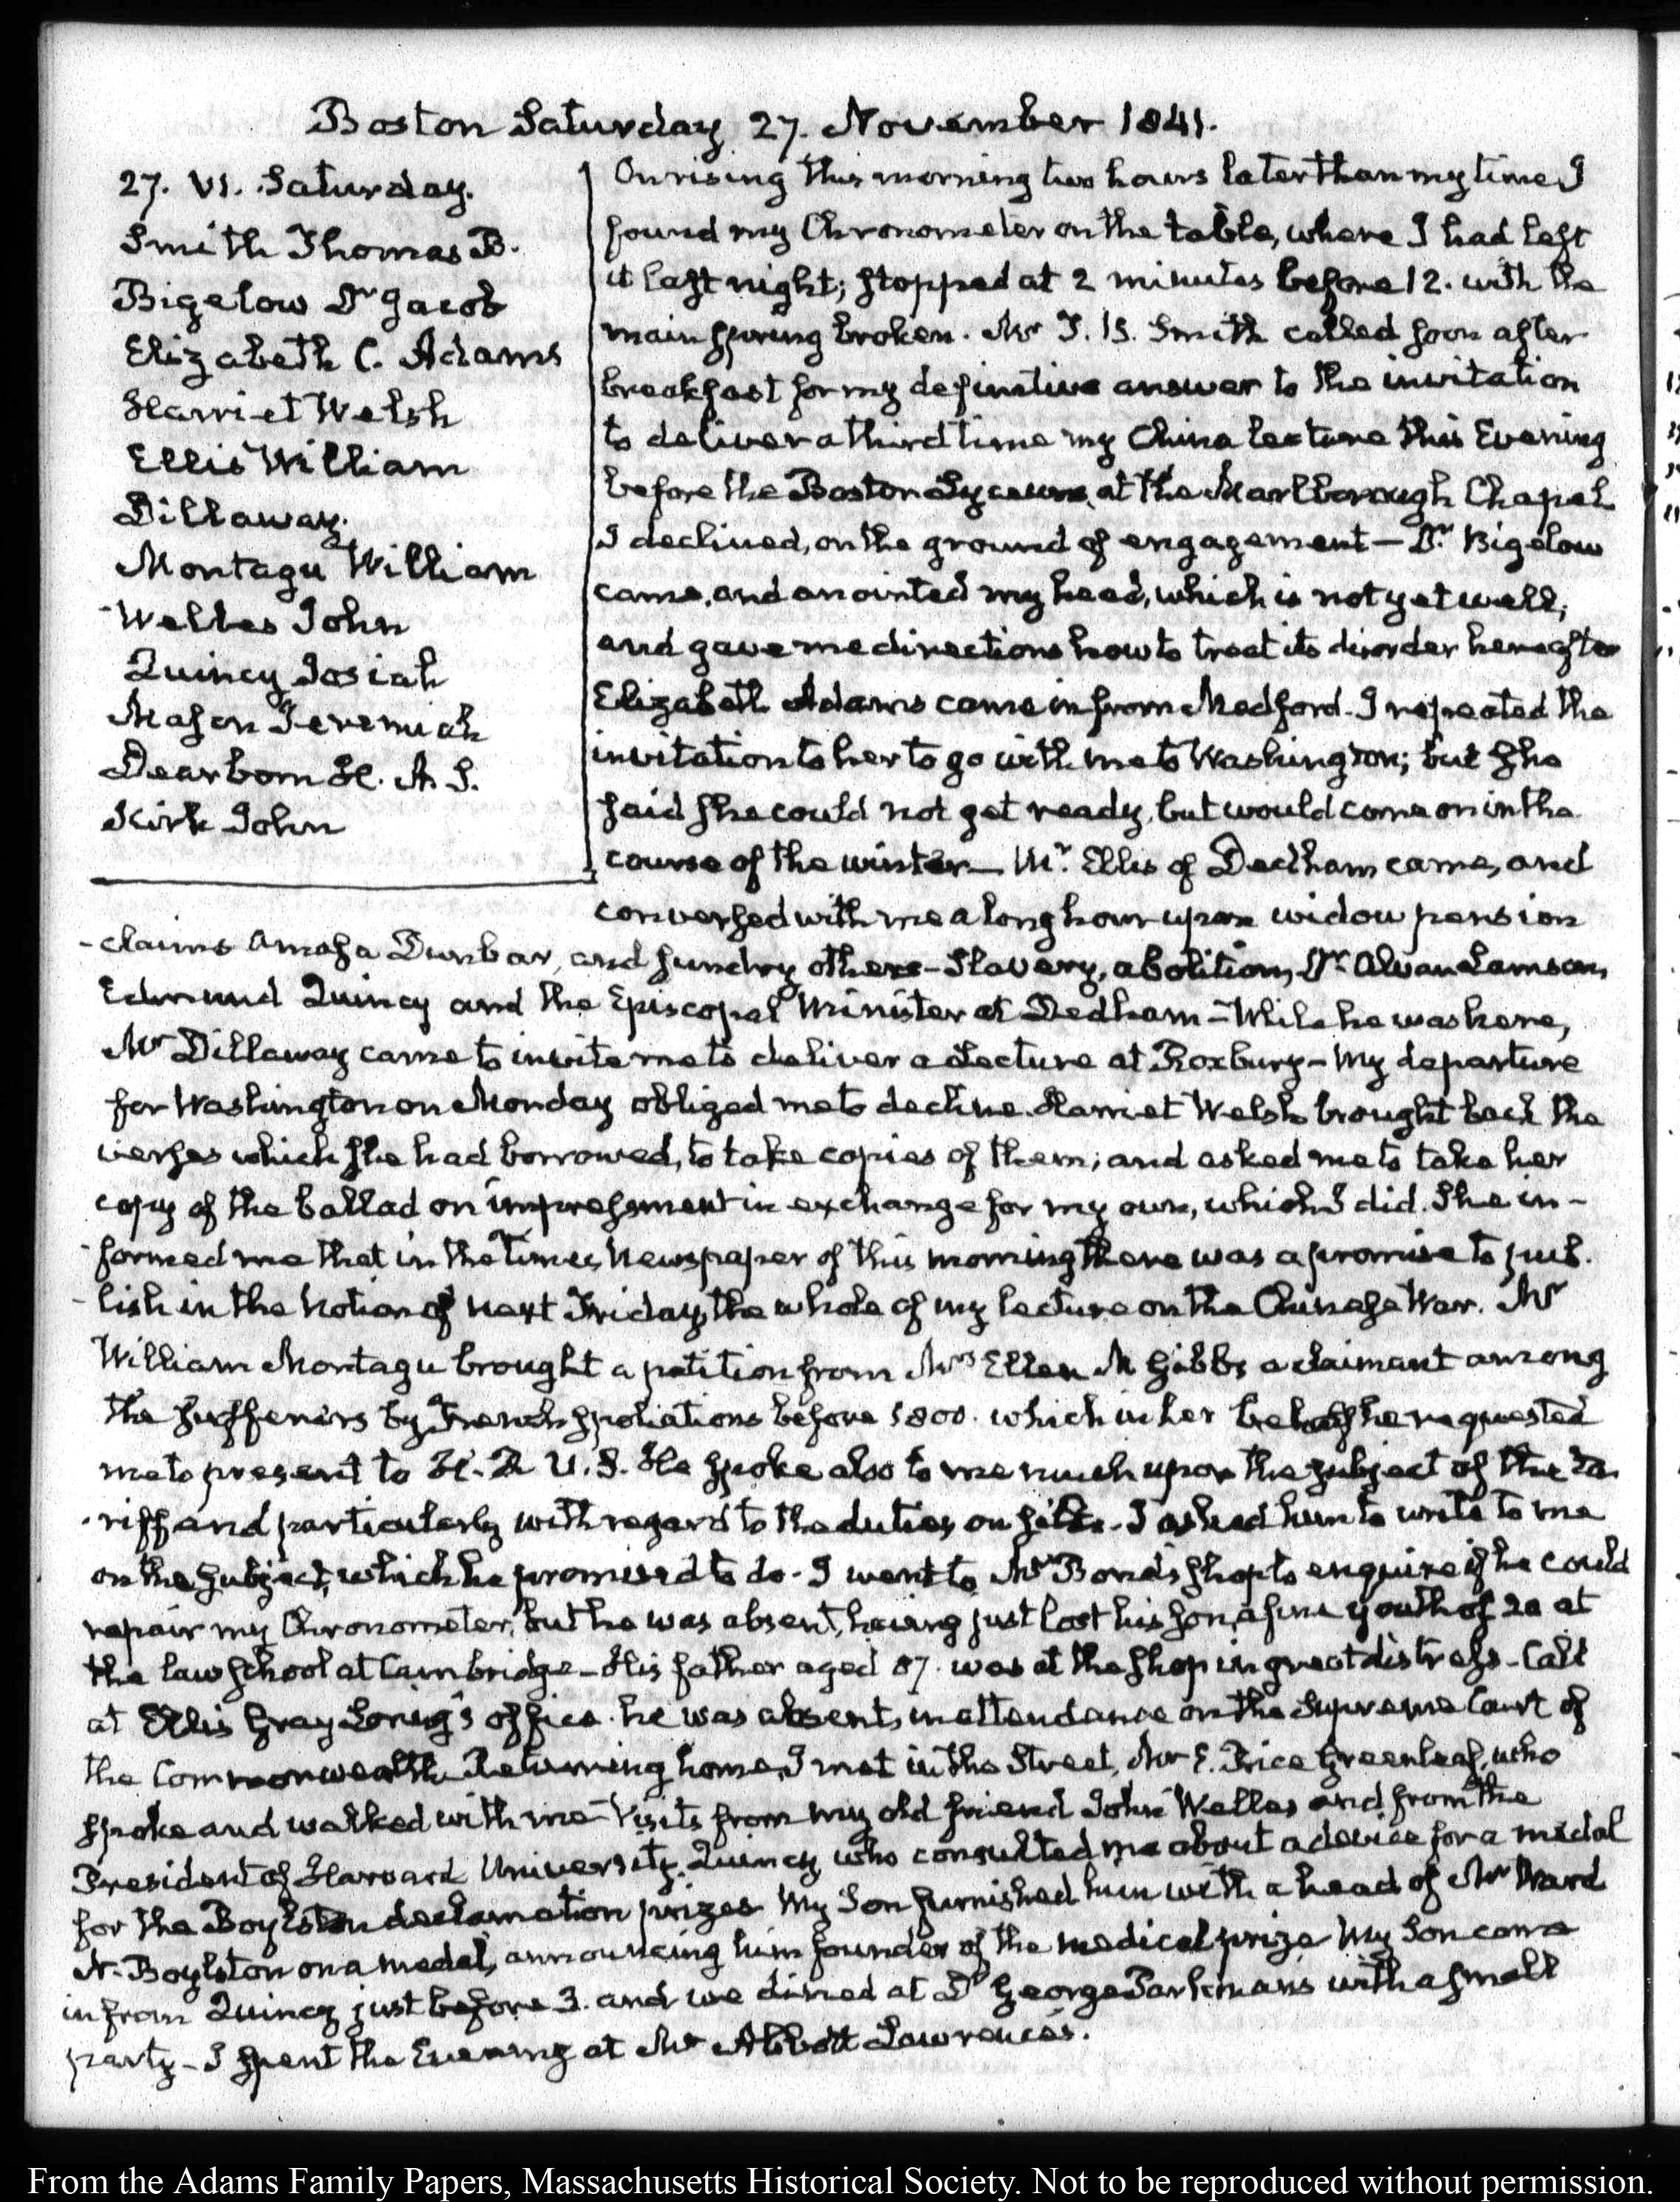 Boston Saturday 27. November 1841.
27. VI. Saturday.
Smith Thomas B.
Bigelow Dr Jacob
Elizabeth C. Adams
Harriet Welsh
Ellis William
Dillaway.
Montagu William
Welles John
Quincy Josiah
Mason Jeremiah
Dearborn H. A. S.
Kirk John
On rising this morning two hours later than my time I
found my Chronometer on the table, where I had left
it last night; stopped at 2 minutes before 12. with the
main spring broken. Mr T. B. Smith called soon after
breakfast for my definitive answer to the invitation
to deliver a third time my China lecture this Evening
before the Boston Lyceum, at the Marlborough Chapel
I declined, on the ground of engagement — Dr. Bigelow
came, and anointed my head, which is not yet well;
and gave me directions how to treat its disorder hereafter
Elizabeth Adams came in from Medford. I repeated the
invitation to her to go with me to Washington; but she
said she could not get ready, but would come on in the
course of the winter — Mr. Ellis of Dedham came, and
conversed with me a long hour upon widow pension
claims Amasa Dunbar, and sundry others — Slavery, abolition, Dr. Alvan Lamson,
Edmund Quincy and the Episcopal Minister at Dedham — While he was here,
Mr Dillaway came to invite me to deliver a Lecture at Roxbury — My departure
for Washington on Monday obliged me to decline. Harriet Welsh brought back the
verses which she had borrowed, to take copies of them; and asked me to take her
copy of the ballad on impressment in exchange for my own, which I did. She in-
formed me that in the Times Newspaper of this morning there was a promise to pub-
lish in the Notion of next Friday, the whole of my lecture on the Chinese War. Mr
William Montagu brought a petition from Mrs Ellen M Gibbs a claimant among
the sufferers by French spoliations before 1800. which in her behalf he requested
me to present to H. R. U. S. He spoke also to me much upon the subject of the ta-
riff and particularly with regard to the duties on silks. I asked him to write to me
on the subject, which he promised to do. I went to Mr Bond's shop to enquire if he could
repair my Chronometer, but he was absent, having just lost his son, a fine youth of 20 at
the law school at Cambridge — His father aged 87. was at the shop in great distress — Call
at Ellis Gray Loring's office. he was absent, in attendance on the Supreme Court of
the Commonwealth. Returning home, I met in the Street, Mr E. Price Greenleaf, who
spoke and walked with me — Visits from my old friend John Welles and from the
President of Harvard University, Quincy who consulted me about a device for a medal
for the Boylston declamation prizes My Son furnished him with a head of Mr Ward
N. Boylston on a medal, announcing him founder of the medical prize My Son came
in from Quincy just before 3. and we dined at Dr George Parkman's with a small
party — I spent the Evening at Mr Abbott Lawrence's.
From the Adams Family Papers, Massachusetts Historical Society. Not to be reproduced without permission.